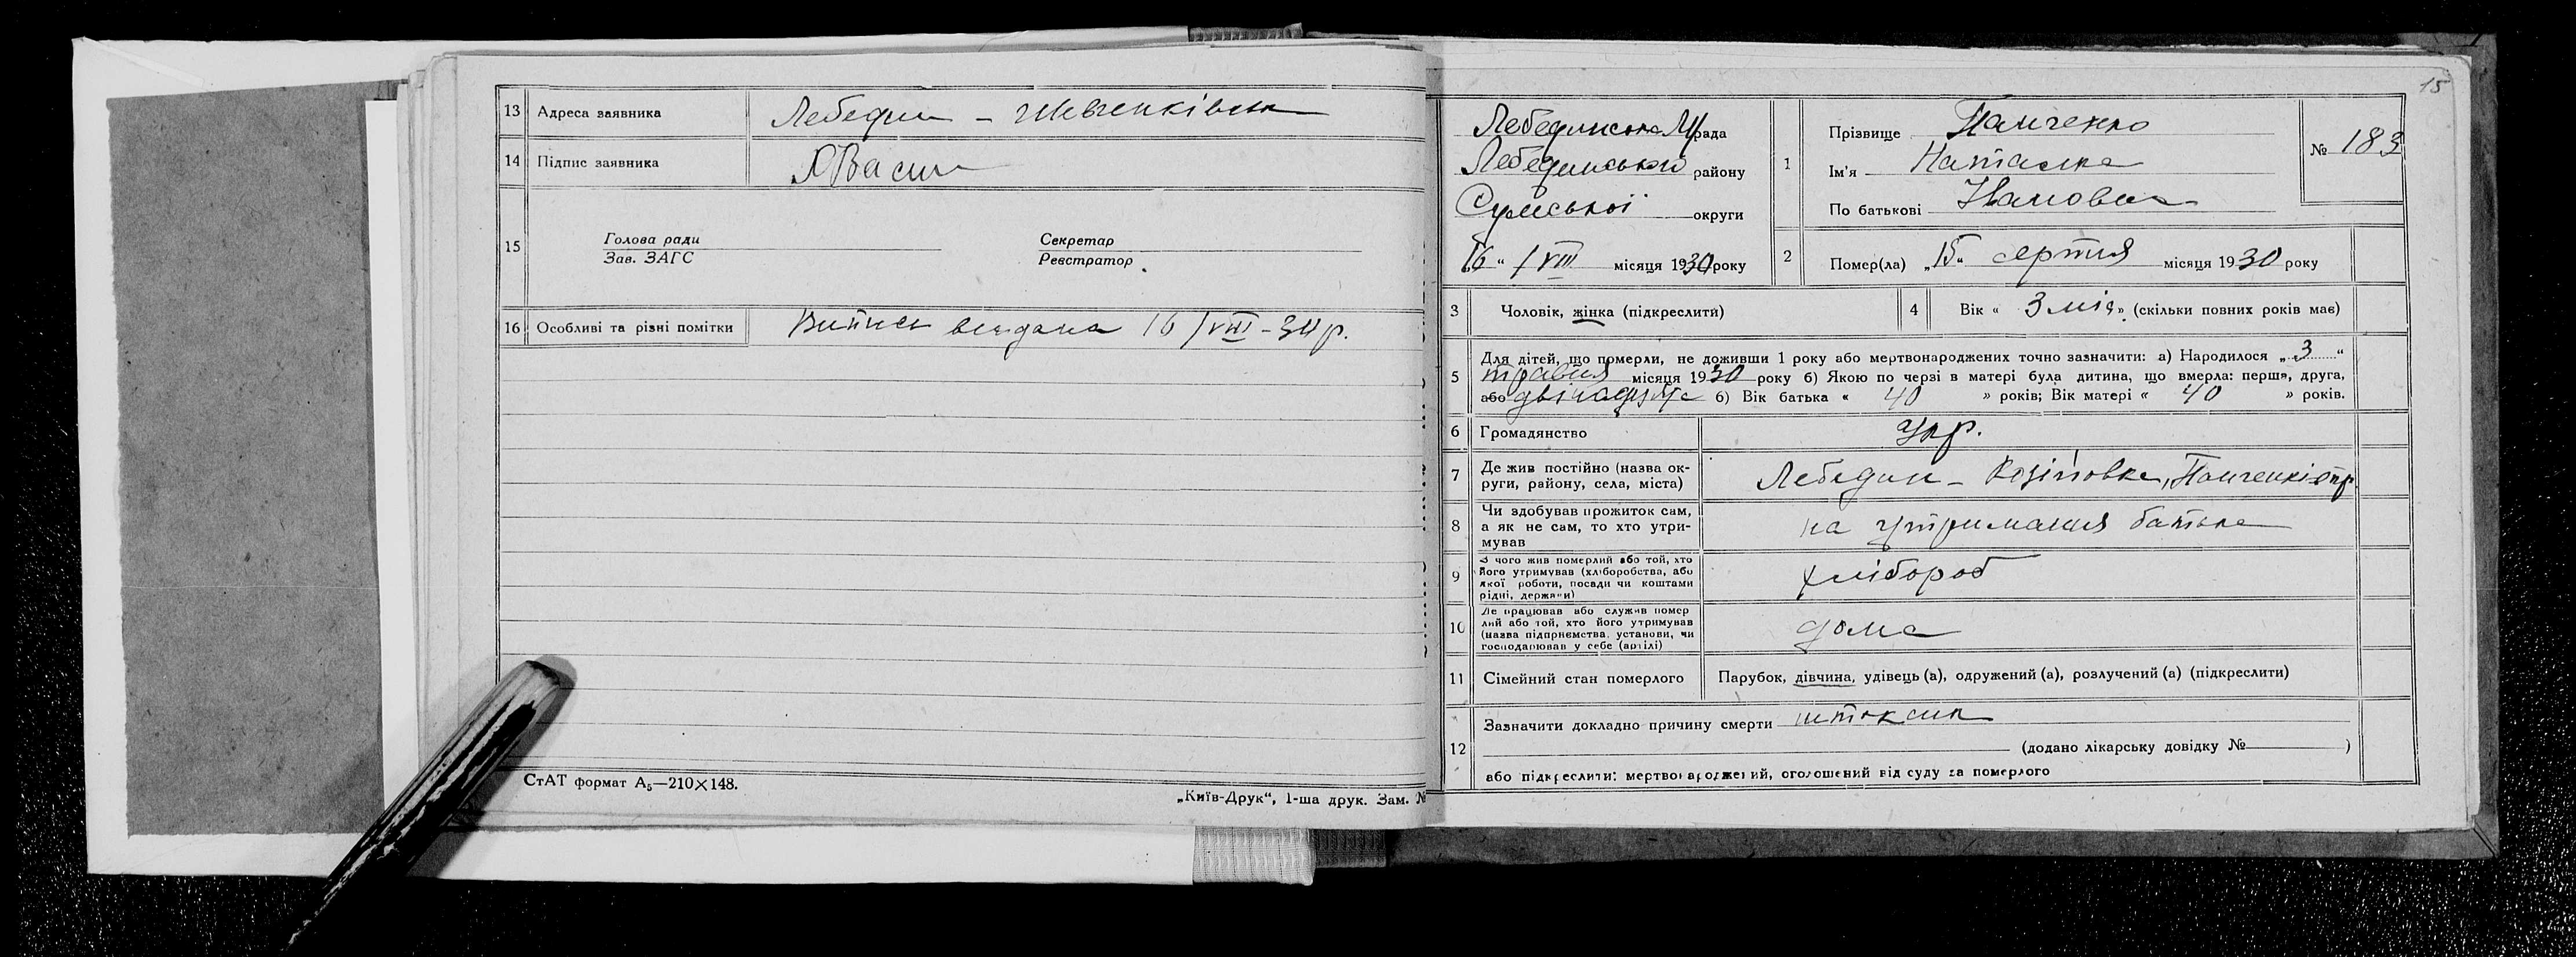 13 Адреса заявника Лебедин – Шевченківська
14 Підпис заявника
15 Голова ради Секретар
Зав. ЗАГС Реєстратор
16 Особливі та різні помітки Випись видана 16/VIII – 30 р.
СтАТ формат А₅—210×148.
„Київ-Друк“, 1-ша друк. Зам. №
15
Лебединська рада
Лебединського району
Сумської округи
16 “ / VIII місяця 1930 року
1 Прізвище Панченко
Ім'я Наталка
По батькові Івановна
№ 183
2 Помер(ла) „15“ серпня місяця 1930 року
3 Чоловік, жінка (підкреслити)
4 Вік « 3 міс » (скільки повних років має)
5 Для дітей, що померли, не доживши 1 року або мертвонароджених точно зазначити: а) Народилося „3“
травня місяця 1930 року б) Якою по черзі в матері була дитина, що вмерла: перша, друга,
або дванадцята б) Вік батька « 40 » років; Вік матері « 40 » років.
6 Громадянство Укр.
7 Де жив постійно (назва ок-
руги, району, села, міста) Лебедин –
8 Чи здобував прожиток сам,
а як не сам, то хто утри-
мував на утримання батька
9 З чого жив померлий або той, хто
його утримував (хліборобства, або
якої роботи, посади чи коштами
рідні, держави) хлібороб
10 Де працював або служив помер
лий або той, хто його утримував
(назва підприємства, установи, чи
господарював у себе (артілі) дома
11 Сімейний стан померлого Парубок, дівчина, удівець (а), одружений (а), розлучений (а) (підкреслити)
12 Зазначити докладно причину смерти
(додано лікарську довідку № )
або підкреслити: мертвонароджений, оголошений від суду за померлого